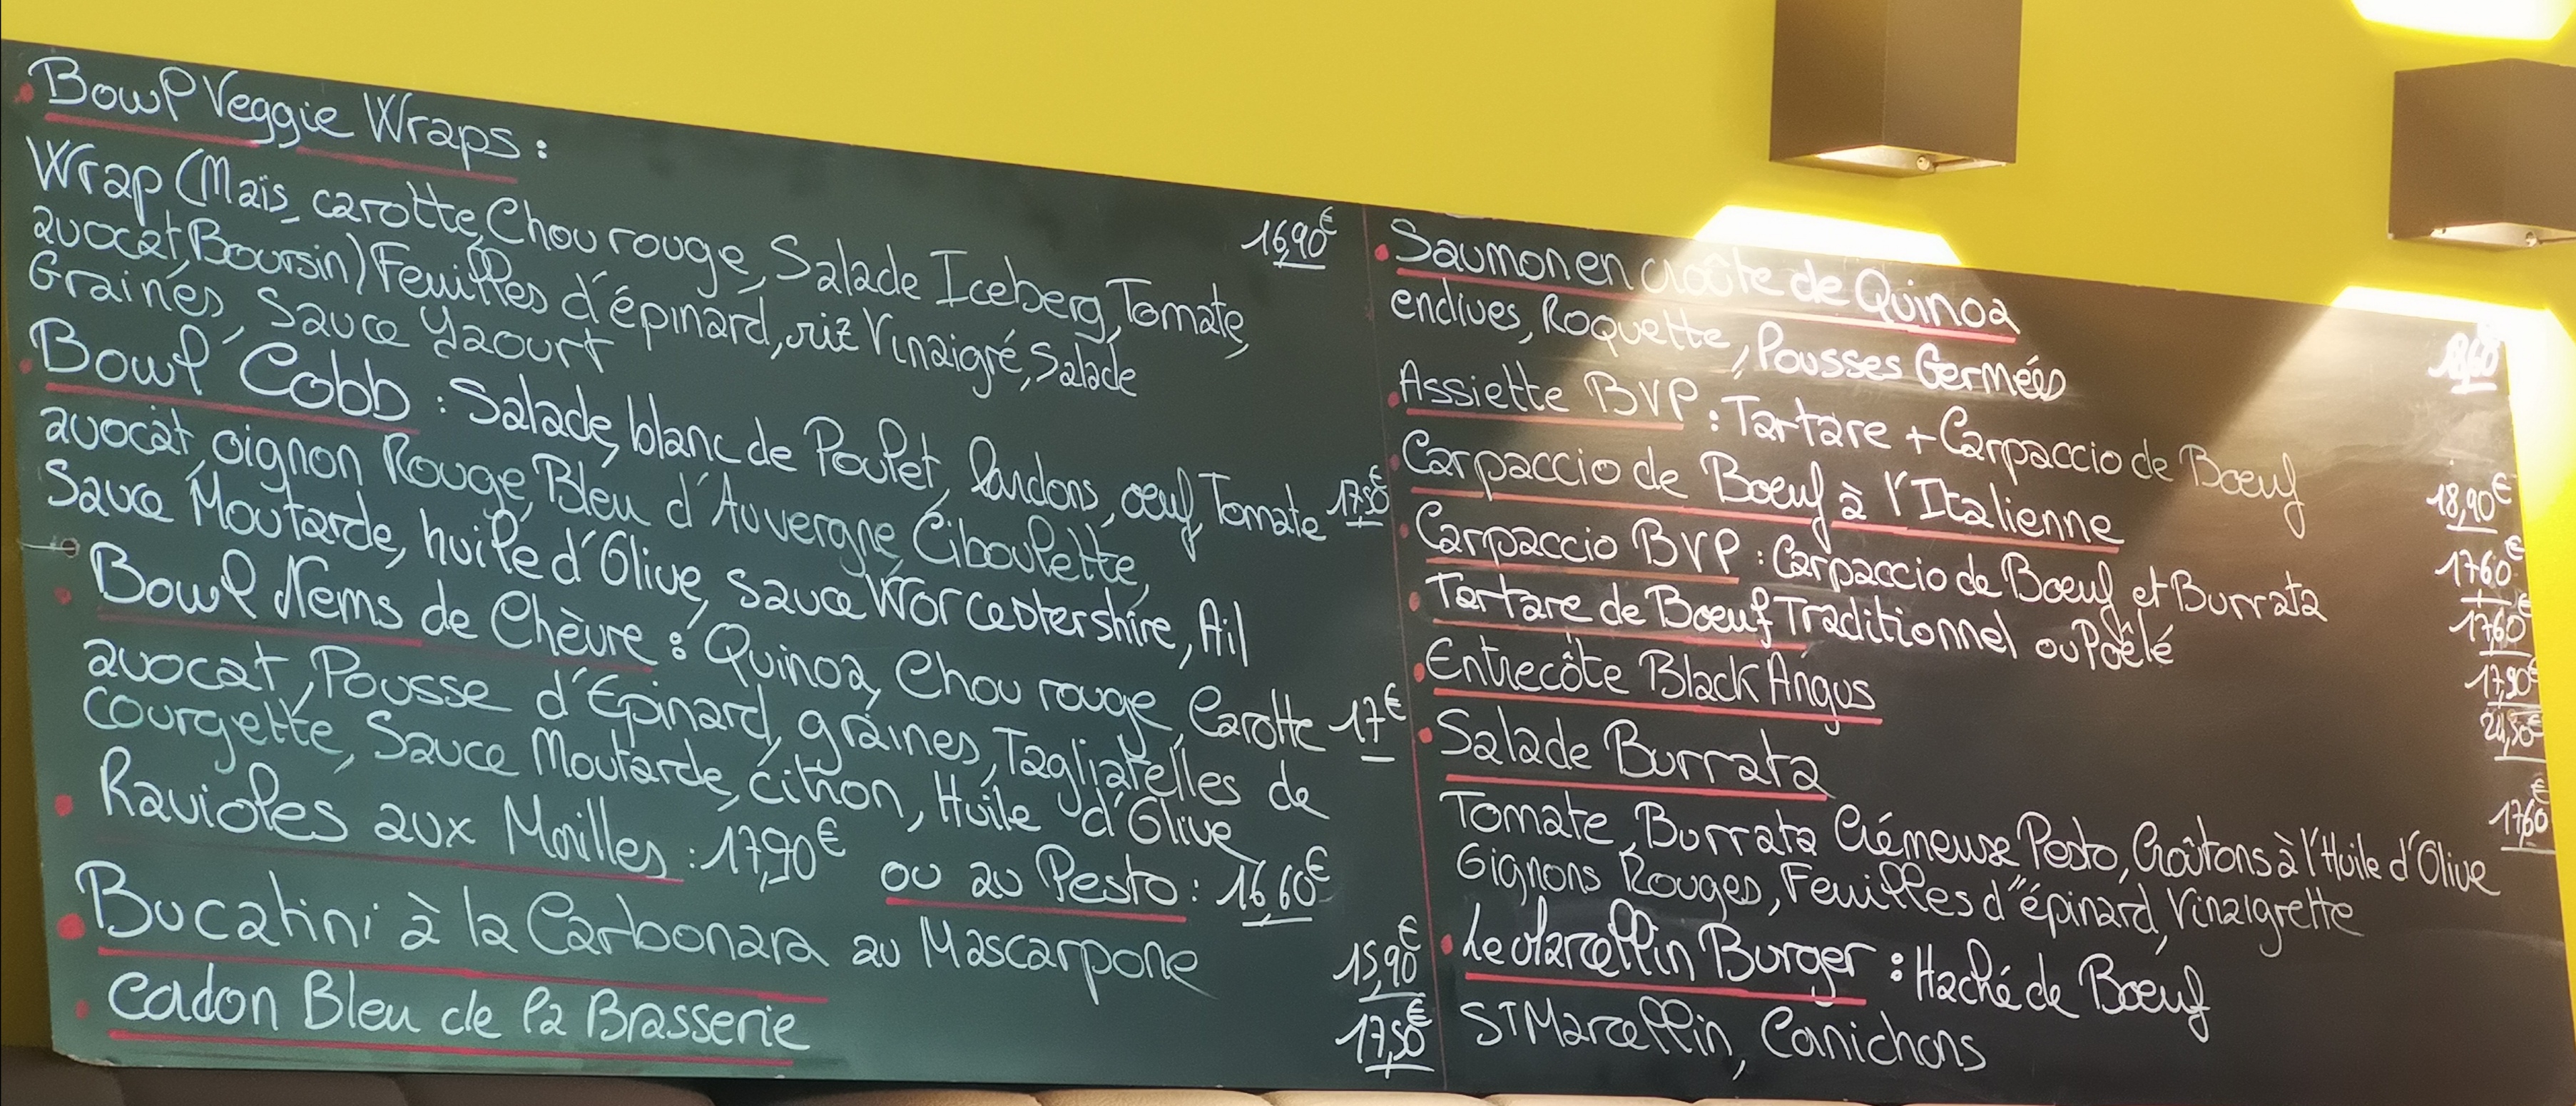 Bowl Veggie Wraps :
Wrap (Maïs, carotte, Chou rouge, Salade Iceberg, Tomate, 16,90€
avocat, Boursin) Feuilles d'épinard, riz Vinaigré, Salade
Graines, Sauce Yaourt
Bowl Cobb : Salade, blanc de Poulet, lardons, oeuf, Tomate 17,50€
avocat, oignon Rouge, Bleu d'Auvergne, Ciboulette,
Sauce Moutarde, huile d'Olive, Sauce Worcestershire, Ail
Bowl Nems de Chèvre : Quinoa, Chou rouge, Carotte 17€
avocat, Pousse d'Epinard, graines, Tagliatelles de
Courgette, Sauce Moutarde, citron, Huile d'Olive
Ravioles aux Morilles : 17,90€ ou au Pesto : 16,60€
Bucatini à la Carbonara au Mascarpone 15,90€
Cordon Bleu de la Brasserie 17,50€
Saumon en croûte de Quinoa
endives, Roquette, Pousses Germées 18,60
Assiette BVP : Tartare + Carpaccio de Boeuf 18,90€
Carpaccio de Boeuf à l'Italienne 17,60€
Carpaccio BVP : Carpaccio de Boeuf et Burrata 17,60€
Tartare de Boeuf Traditionnel ou Poêlé 17,90€
Entrecôte Black Angus 24,50€
Salade Burrata 17,60€
Tomate, Burrata Crémeuse Pesto, Croûtons à l'Huile d'Olive
Oignons Rouges, Feuilles d"épinard, Vinaigrette
Le Marcellin Burger : Haché de Boeuf
ST Marcellin, Cornichons